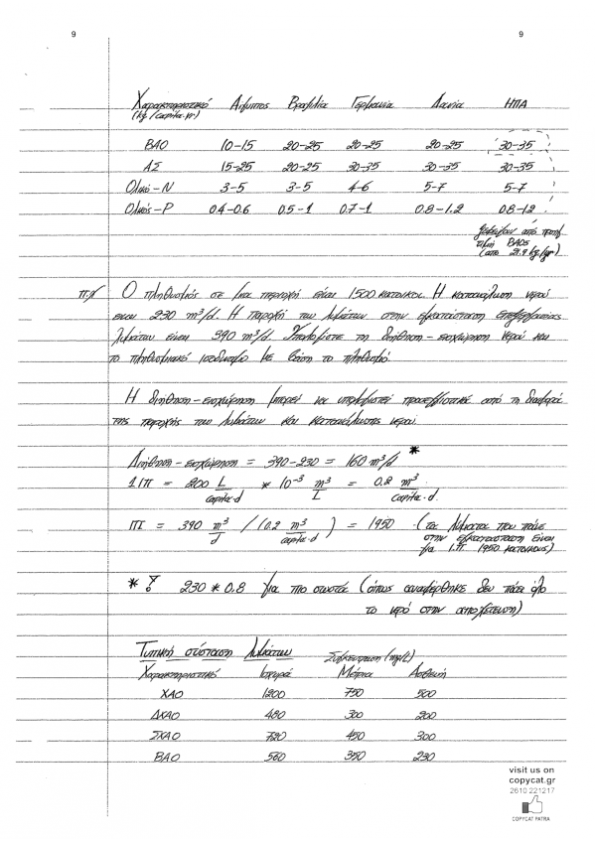 9 9
Χαρακτηριστικό Αίγυπτος Βραζιλία Γερμανία Δανία ΗΠΑ
(kg/capita·yr)
ΒΑΟ 10-15 20-25 20-25 20-25 30-35
ΑΣ 15-25 20-25 30-35 30-35 30-35
Ολικό-Ν 3-5 3-5 4-6 5-7 5-7
Ολικός-Ρ 0.4-0.6 0.5-1 0.7-1 0.8-1.2 0.8-1.2
από
τιμή ΒΑΟ5
(από 21.9 kg/yr)
π.χ Ο πληθυσμός σε μια περιοχή είναι 1500 κάτοικοι. Η κατανάλωση νερού
είναι 230 m³/d. Η παροχή των λυμάτων στην εγκατάσταση επεξεργασίας
λυμάτων είναι 390 m³/d. Υπολογίστε τη διήθηση-εισχώρηση νερού και
το πληθυσμιακό ισοδύναμο με βάση το πληθυσμό.
Η διήθηση-εισχώρηση μπορεί να υπολογιστεί προσεγγιστικά από τη διαφορά
της παροχής των λυμάτων και κατανάλωσης νερού.
Διήθηση-εισχώρηση = 390-230 = 160 m³/d *
1 ΙΠ = 200 L/capita·d * 10⁻³ m³/L = 0.2 m³/capita·d
ΙΠ = 390 m³/d / (0.2 m³/capita·d) = 1950 (τα λύματα που πάνε
στην εγκατάσταση είναι
για Ι.Π 1950 κατοίκους)
* ! 230 * 0.8 για πιο σωστά (όπως αναφέρθηκε δεν πάει όλο
το νερό στην αποχέτευση)
Τυπική σύσταση λυμάτων Συγκέντρωση (mg/L)
Χαρακτηριστικό Ισχυρά Μέτρια Ασθενή
ΧΑΟ 1200 750 500
ΔΧΑΟ 480 300 200
ΣΧΑΟ 720 450 300
ΒΑΟ 560 350 230
visit us on
copycat.gr
2610 221217
COPYCAT PATRA